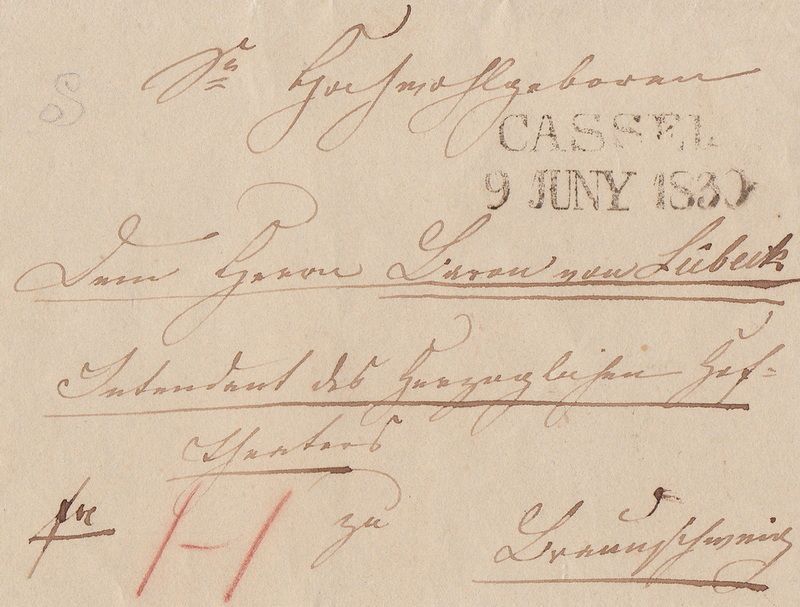 Sr Hochwohlgeboren
CASSEL
9 JUNY 1830
Dem Herrn Baron von Lübeck
Intendant des Herzoglichen Hof-
theaters
fr
zu
Braunschweig